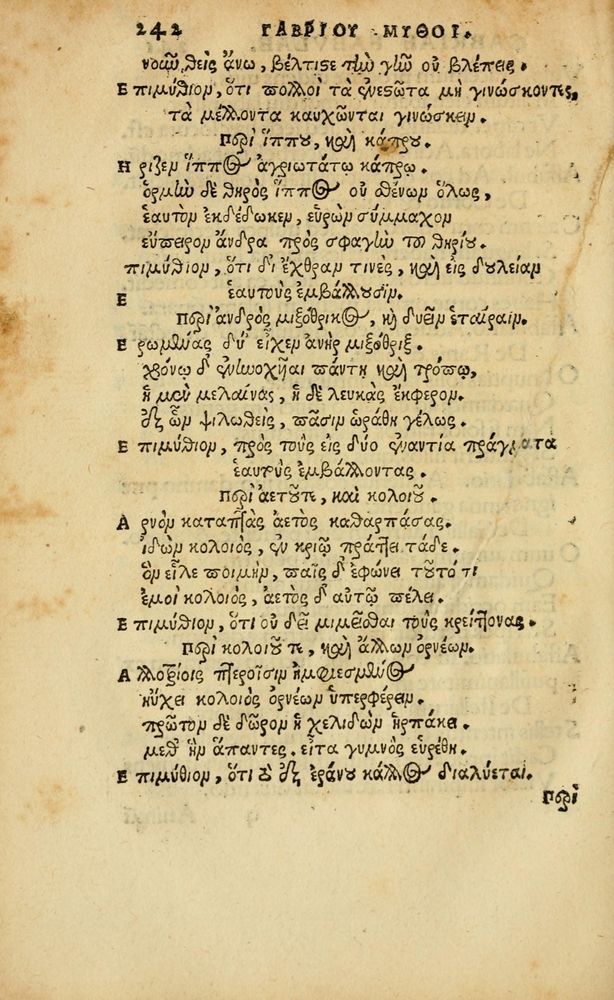 242 ΓΑΒΡΙΟΥ ΜΥΘΟΙ.
νοῶν θεὶς ἄνω, βέλτιστε τὴν γῆν οὐ βλέπεις.
Επιμύθιον, ὅτι πολλοὶ τὰ ἐνεστῶτα μὴ γινώσκοντες,
τὰ μέλλοντα καυχῶνται γινώσκειν.
Περὶ ἵππου, καὶ κάπρου.
Ηριζεν ἵππος ἀγριωτάτῳ κάπρῳ.
ὁρμὴν δὲ θηρὸς ἵππος οὐ σθένων ὅλως,
ἑαυτὸν ἐκδέδωκεν, εὑρὼν σύμμαχον
εὔπειρον ἄνδρα πρὸς σφαγὴν τοῦ θηρίου.
πιμύθιον, ὅτι δι ἔχθραν τινὲς, καὶ εἰς δουλείαν
Ε ἑαυτοὺς ἐμβάλλουσιν.
Περὶ ἀνδρὸς μιξόθριχος, κὶ δυεῖν ἑταίραιν.
Ερωμένας δύ' εἶχεν ἀνὴρ μιξόθριξ.
χρόνῳ δ' ἐνωχῆται πάντη καὶ τρόπῳ,
ἡ μὲν μελαίνας, ἡ δὲ λευκὰς ἔκφερον.
ἐξ ὧν ψιλωθεὶς, πᾶσιν ὡράθη γέλως.
Επιμύθιον, πρὸς τοὺς εἰς δύο ἐναντία πράγματα
ἑαυτοὺς ἐμβάλλοντας.
Περὶ ἀετοῦ τε, καὶ κολοιοῦ.
Αρνὸν καταπτὰς ἀετὸς καθαρπάσας.
ἰδὼν κολοιὸς, ἐν κριῷ πράττει τάδε.
ὃν εἷλε ποιμὴν, παῖς δ' ἐφώνει τοῦτό τι
ἐμοὶ κολοιὸς, ἀετὸς δ' αὑτῷ πέλει.
Επιμύθιον, ὅτι οὐ δεῖ μιμεῖσθαι τοὺς κρείττονας.
Περὶ κολοιοῦ τε, καὶ ἄλλων ὀρνέων.
Αλλοτρίοις πτεροῖσιν ἠμφιεσμένος
ηὔχει κολοιὸς ὀρνέων ὑπερφέρειν.
πρῶτον δὲ δῶρον ἡ χελιδὼν ἥρπακε.
μεθ' ἣν ἅπαντες. εἶτα γυμνὸς εὑρέθη.
Επιμύθιον, ὅτι τὸ ἐξ ἐράνου κάλλος διαλύεται.
Περὶ